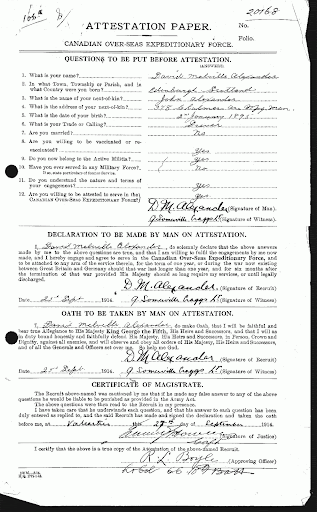 20168
ATTESTATION PAPER.
No.
Folio.
CANADIAN OVER-SEAS EXPEDITIONARY FORCE.
QUESTIONS TO BE PUT BEFORE ATTESTATION.
(ANSWERS)
1. What is your name? David Melville Alexander
2. In what Town, Township or Parish, and in what Country were you born? Edinburgh Scotland
3. What is the name of your next-of-kin? John Alexander
4. What is the address of your next-of-kin? Ave Wpg. Man.
5. What is the date of your birth? January 1895
6. What is your Trade or Calling?
7. Are you married? No
8. Are you willing to be vaccinated or re-vaccinated? Yes
9. Do you now belong to the Active Militia? Yes
10. Have you ever served in any Military Force? No
11. Do you understand the nature and terms of your engagement? Yes
12. Are you willing to be attested to serve in the CANADIAN OVER-SEAS EXPEDITIONARY FORCE? Yes
D. M. Alexander (Signature of Man)
G Somerville (Signature of Witness)
DECLARATION TO BE MADE BY MAN ON ATTESTATION.
I, David Melville Alexander, do solemnly declare that the above answers
made by me to the above questions are true, and that I am willing to fulfil the engagements by me now
made, and I hereby engage and agree to serve in the Canadian Over-Seas Expeditionary Force, and
to be attached to any arm of the service therein, for the term of one year, or during the war now existing
between Great Britain and Germany should that war last longer than one year, and for six months after
the termination of that war provided His Majesty should so long require my services, or until legally
discharged.
D. M. Alexander (Signature of Recruit)
Date Sept. 1914. G Somerville (Signature of Witness)
OATH TO BE TAKEN BY MAN ON ATTESTATION.
I, David Melville Alexander, do make Oath, that I will be faithful and
bear true Allegiance to His Majesty King George the Fifth, His Heirs and Successors, and that I will as
in duty bound honestly and faithfully defend His Majesty, His Heirs and Successors, in Person, Crown and
Dignity, against all enemies, and will observe and obey all orders of His Majesty, His Heirs and Successors,
and of all the Generals and Officers set over me. So help me God.
D. M. Alexander (Signature of Recruit)
Date Sept. 1914. G Somerville (Signature of Witness)
CERTIFICATE OF MAGISTRATE.
The Recruit above-named was cautioned by me that if he made any false answer to any of the above
questions he would be liable to be punished as provided in the Army Act.
The above questions were then read to the Recruit in my presence.
I have taken care that he understands each question, and that his answer to each question has been
duly entered as replied to, and the said Recruit has made and signed the declaration and taken the oath
before me, at Valcartier this day of September 1914.
(Signature of Justice)
Capt
I certify that the above is a true copy of the Attestation of the above-named Recruit.
R. L. Boyle (Approving Officer)